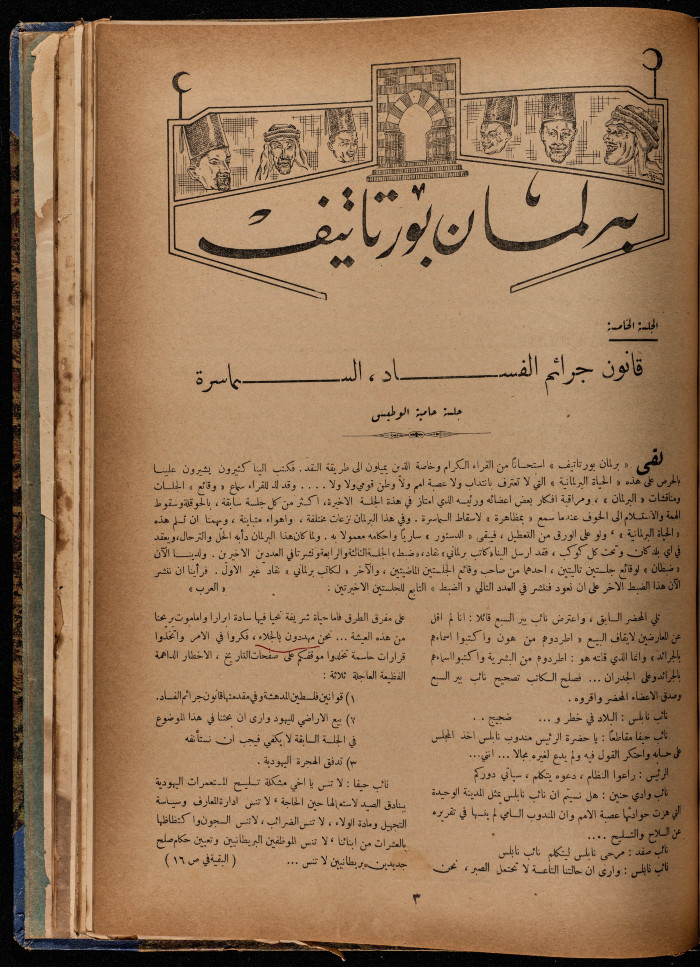 برلمان بورتاتيف
الجلسة الخامسة
قانون جرائم الفساد ، السماسرة
جلسة حامية الوطيس
لقى « برلمان بورتاتيف » استحسانًا من القراء الكرام وخاصة الذين يميلون الى طريقة النقد . فكتب الينا كثيرون يشيرون علينا
بالحرص على هذه « الحياة البرلمانية » التي لا تعترف بانتداب ولا عصبة امم ولا وطن قومي ولا ولا .... وقد لذ للقراء سماع « وقائع » الجلسات
ومناقشات « البرلمان » ، ومراقبة افكار بعض اعضائه ورئيسه الذي امتاز في هذة الجلسة الاخيرة ، اكثر من كل جلسة سابقة ، بالحوقلة وسقوط
الهمة والاستسلام الى الخوف عندما سمع « بمظاهرة » لاسقاط السماسرة . وفي هذا البرلمان نزعات مختلفة ، واهواء متباينة ، ويهمنا ان تسلم هذه
« الحياة البرلمانية » ، ولو على الورق من التعطيل ، فيبقى « الدستور » ساريًا واحكامه معمولا به . ولما كان هذا البرلمان دأبه الحل والترحال ، ويعقد
في أي بلد كان وتحت كل كوكب ، فقد ارسل الينا « كاتب برلماني » نقاد ، « ضبط » الجلسة الثالثة والرابعة ونشرتا في العددين الاخيرين . ولدينا الآن
« ضبطان » لوقائع جلستين تاليتين ، احدهما من صاحب وقائع الجلستين الماضيتين ، والآخر « لكاتب برلماني » نقاد غير الاول . فرأينا ان ننشر
الآن هذا الضبط الآخر على ان نعود فننشر في العدد التالي « الضبط » التابع للجلستين الاخيرتين : « العرب »
تلي المحضر السابق ، واعترض نائب بير السبع قائلا : انا لم اقل
عن المعارضين لايقاف البيع « اطردوهم من هون واكتبوا اسماءهم
بالجرائد » وانما الذي قلته هو : اطردوهم من البشرية واكتبوا اسماءهم
بالجرائد وعلى الجدران ... فصلح الكاتب تصحيح نائب بير السبع
وصدق الاعضاء المحضر واقروه .
نائب نابلس : البلاد في خطر و ... ضجيج . .
نائب حيفا مقاطعًا : يا حضرة الرئيس مندوب نابلس اخذ المجلس
على حسابه واحتكر القول فيه ولم يدع لغيره مجالا ... انني ...
الرئيس : راعوا النظام ، دعوه يتكلم ، سيأتي دوركم
نائب وادي حنين : هل نسيتم ان نائب نابلس يمثل المدينة الوحيدة
التي هزت حوادثها عصبة الامم وان المندوب السامي لم ينسها في تقريره
عن السلاح والتسليح ....
نائب صفد : مرحى نابلس ليتكلم نائب نابلس
نائب نابلس : وارى ان حالتنا التاعسة لا تحتمل الصبر ، نحن
على مفرق الطرق فاما حياة شريفة نحيا فيها سادة ابرارا واما موت يريحنا
من هذه العيشة ... نحن مهددون بالجلاء ، فكروا في الامر واتخذوا
قرارات حاسمة تخلدوا موقفكم على صفحات التاريخ ، الاخطار الداهمة
الفظيعة العاجلة ثلاثة :
١) قوانين فلسطين المدهشة وفي مقدمتها قانون جرائم الفساد .
٢) بيع الاراضي لليهود وارى ان بحثنا في هذا الموضوع
في الجلسة السابقة لا يكفي فيجب ان نستأنفه
٣) تدفق الهجرة اليهودية .
نائب حيفا : لا تنس يا اخي مشكلة تسليح المستعمرات اليهودية
بنادق الصيد لاستعمالها حين الحاجة ، لا تنس ادارة المعارف وسياسة
التجهيل ومادة الولاء ، لا تنس الضرائب ، لا تنس السجون واكتظاظها
بالعشرات من ابنائنا ، لا تنس الموظفين البريطانيين وتعيين حكام صلح
جديدين بريطانيين لا تنس ... ( البقية في ص ١٦ )
٣